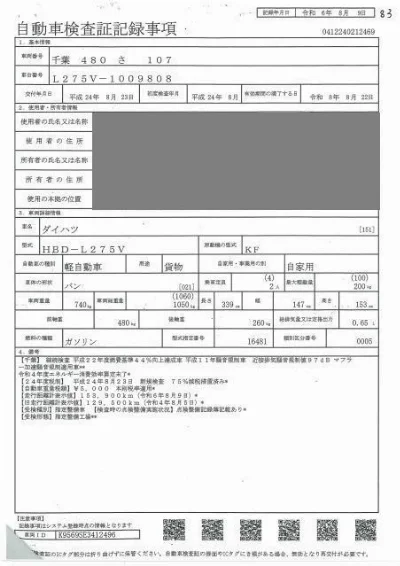 83
記録年月日 令和 6年 8月 9日
自動車検査証記録事項
0412240212469
1．基本情報
車両番号 千葉 480 さ 107
車台番号 L275V-1009808
交付年月日 平成 24年 8月 23日 初度検査年月 平成 24年 8月 有効期間の満了する日 令和 8年 8月 22日
2．使用者・所有者情報
使用者の氏名又は名称
使用者の住所
所有者の氏名又は名称
所有者の住所
使用の本拠の位置
3．車両詳細情報
車名 ダイハツ [151]
型式 HBD-L275V 原動機の型式 KF
自動車の種別 軽自動車 用途 貨物 自家用・事業用の別 自家用
車体の形状 バン [021] 乗車定員 (4) 2人 最大積載量 (100) 200kg
車両重量 740kg 車両総重量 (1060) 1050kg 長さ 339cm 幅 147cm 高さ 153cm
前軸重 480kg 後軸重 260kg 総排気量又は定格出力 0.65 L
燃料の種類 ガソリン 型式指定番号 16481 類別区分番号 0005
4．備考
[千葉] 継続検査 平成22年度燃費基準44%向上達成車 平成11年騒音規制車 近接排気騒音規制値97dB マフラ
ー加速騒音規制適用車**
令和4年度エネルギー消費効率算定未了*
[24年度税制] 平成24年8月23日 新規検査 75%減税措置済み*
[自動車重量税額] ¥5,000 本則税率適用*
[走行距離計表示値] 153,900km (令和6年8月9日)
[旧走行距離計表示値] 129,500km (令和4年8月5日)*
[受検種別] 指定整備車 [検査時の点検整備実施状況] 点検整備記録簿記載あり*
[受検形態] 指定整備工場**
[注意事項]
記録事項はシステム登録時点の情報となります
車両ID K95695E3412496